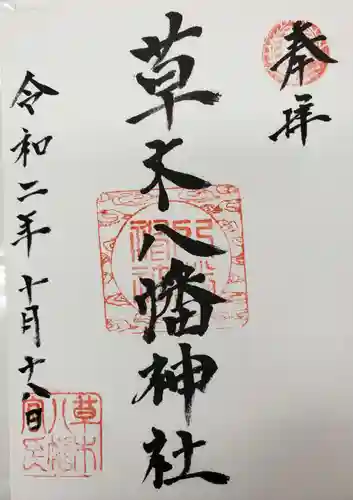 奉拝
草木八幡神社
令和二年十月十八日